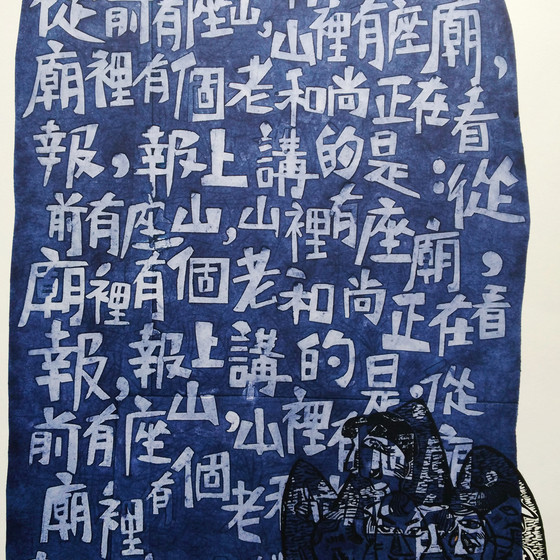 從前有座山,山裡有座廟,
廟裡有個老和尚正在看
報,報上講的是:從
前有座山,山裡有座廟,
廟裡有個老和尚正在看
報,報上講的是:從
前有座山,山裡有
廟裡有個老